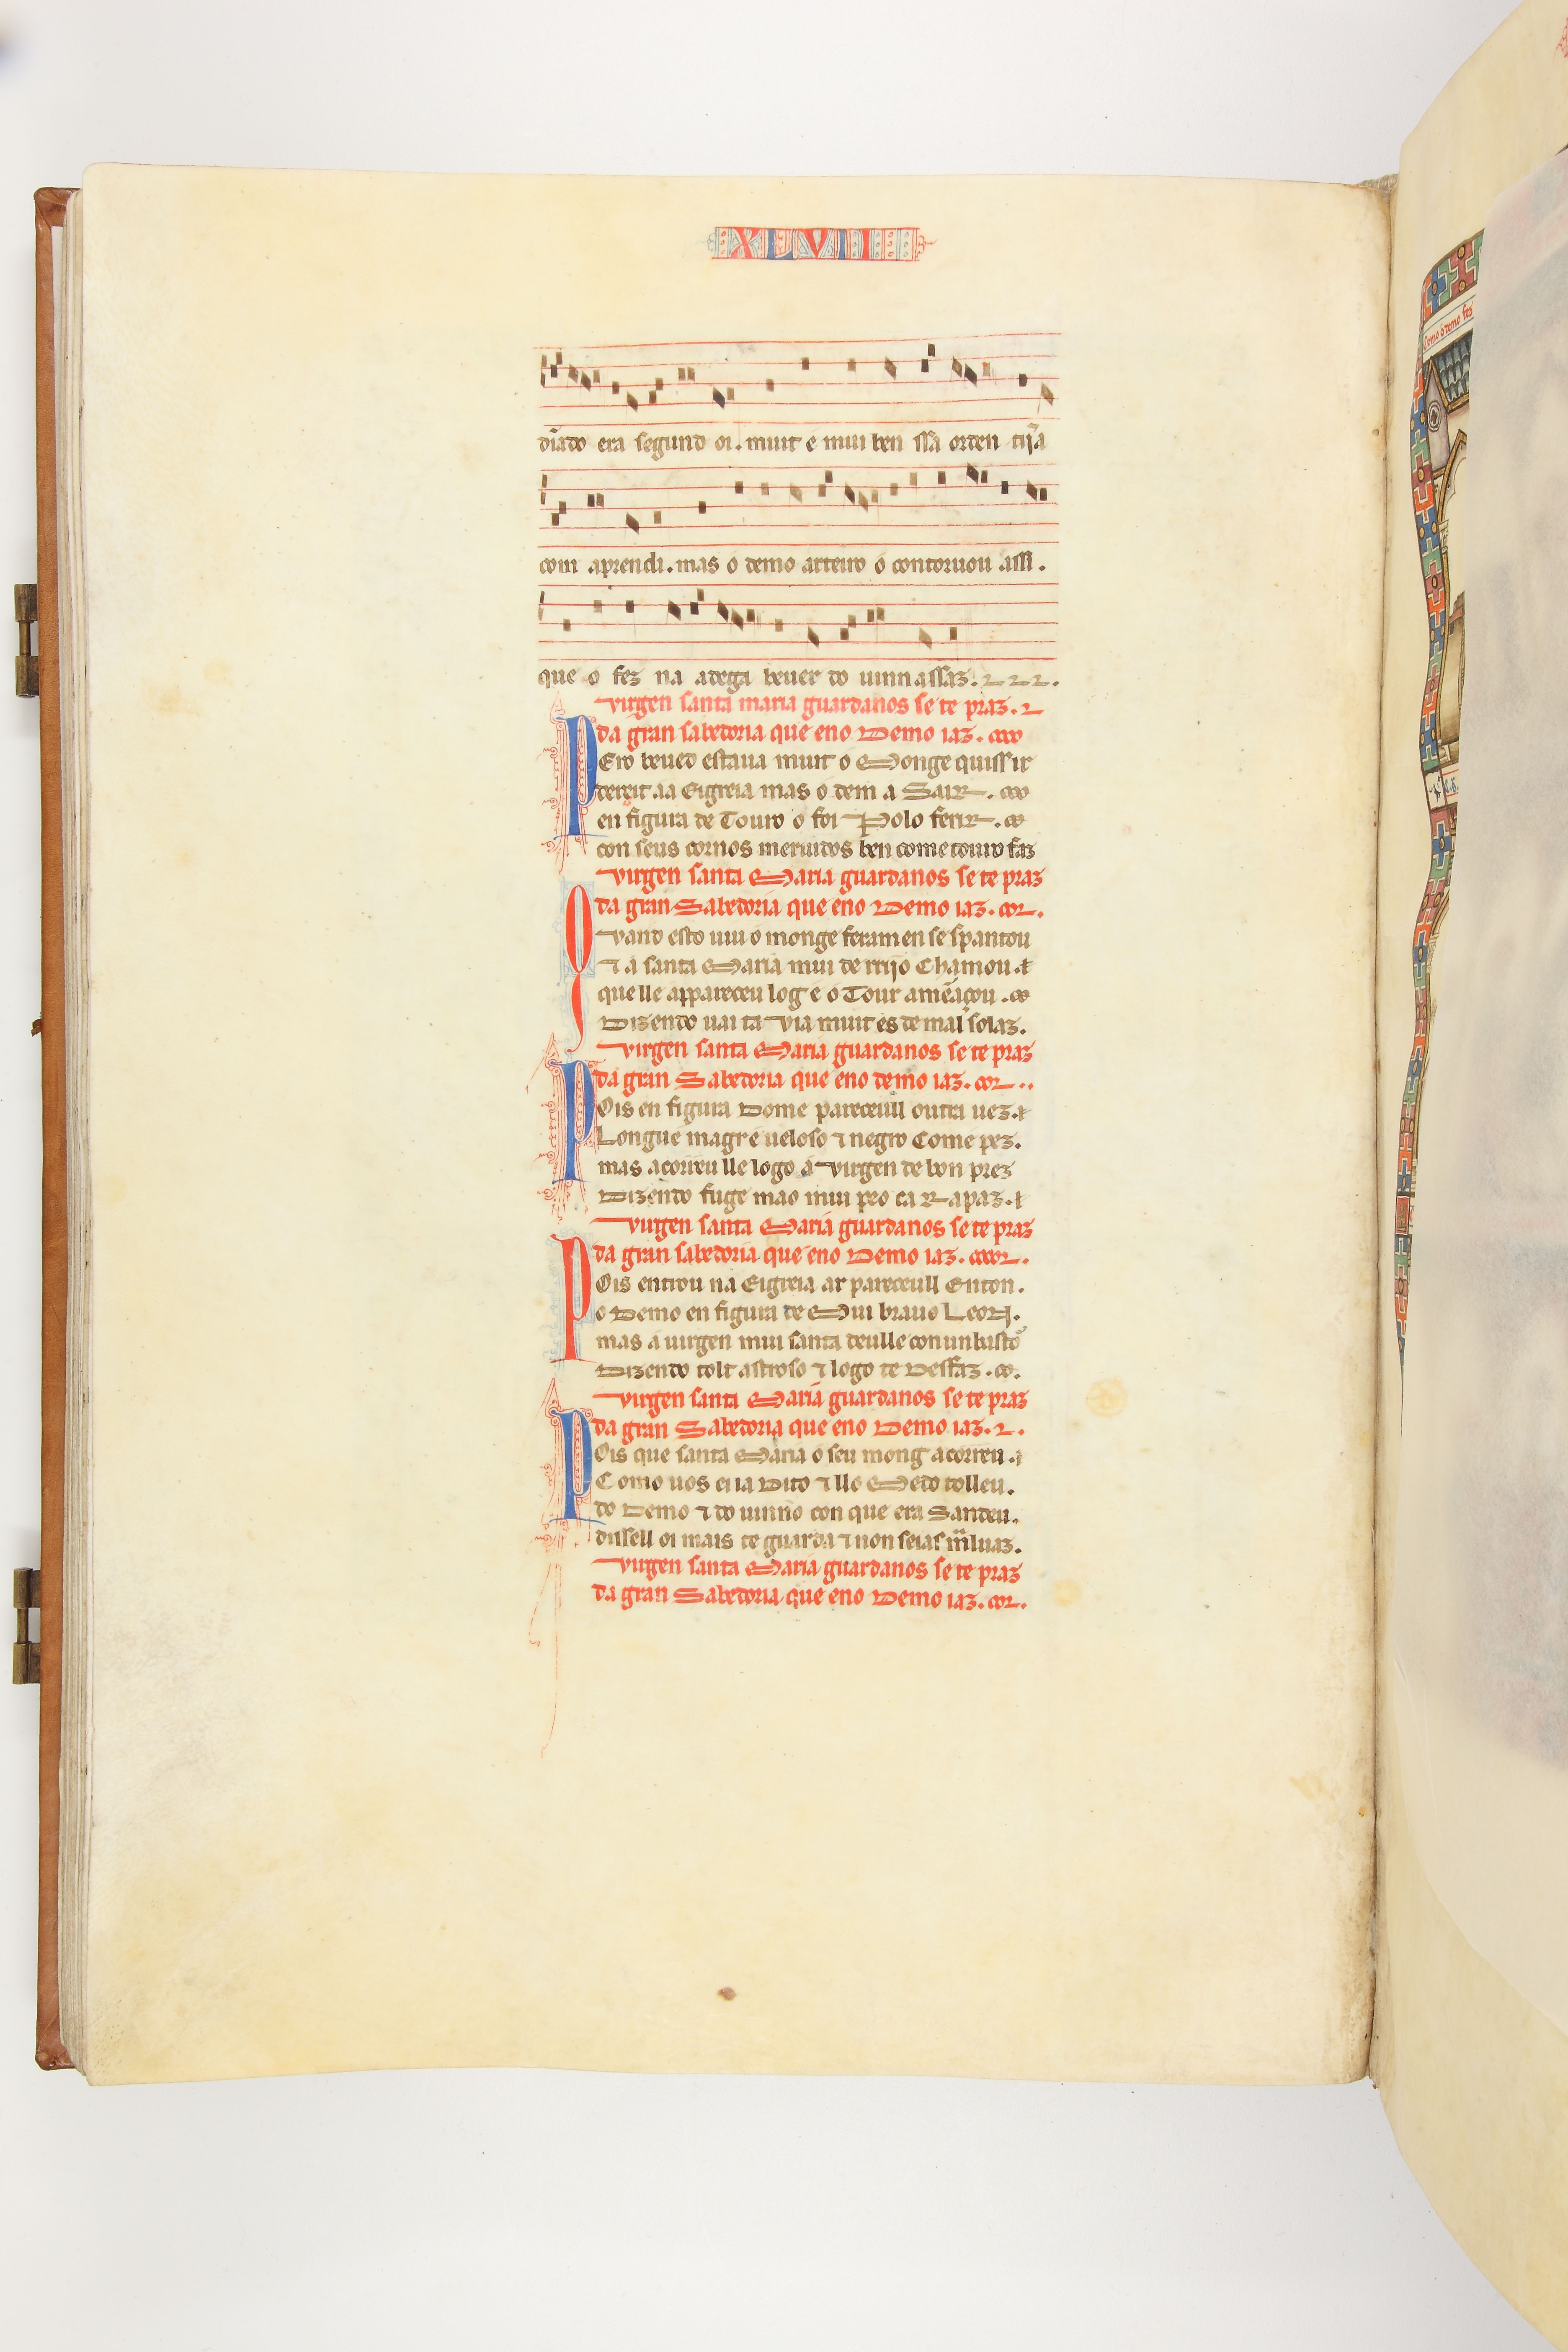 XLVII
diado era segund oi. muit e mui ben ssa orden tija
com aprendi. mas o demo arteiro o contoruou assi.
que o fez na adega beuer do uinn assaz.
virgen santa maria guardanos se te praz.
da gran sabedoria que eno Demo iaz.
PEro beued estaua muit o Monge quiss ir
dereit aa Eigreia mas o dem a Sair.
en figura de Touro o foi Polo ferir.
con seus cornos meruidos ben come touro faz
virgen santa Maria guardanos se te praz
da gran Sabedoria que eno Demo iaz.
Quand esto uiu o monge feramen se spantou
⁊ a santa Maria mui de rrijo Chamou.
que lle appareceu log e o Tour amẽaçou.
Dizendo uai ta via muit es de mal solaz.
virgen santa Maria guardanos se te praz
da gran Sabedoria que eno demo iaz.
POis en figura Dome pareceull outra uez.
Longu e magr e ueloso ⁊ negro Come pez.
mas acorreu lle logo a virgen de bon prez
Dizendo fuge mao mui peo ca Rapaz.
virgen santa Maria guardanos se te praz
da gran sabedoria que eno Demo iaz.
POis entrou na Eigreia ar pareceull Enton.
o Demo en figura de Mui brauo Leon.
mas a uirgen mui santa deulle con un bastõ
Dizendo tolt astroso ⁊ logo te Desfaz.
virgen santa Maria guardanos se te praz
da gran Sabedoria que eno Demo iaz.
POis que santa Maria o seu mong acorreu.
Como uos ei ia Dito ⁊ llo Medo tolleu.
do Demo ⁊ do uinno con que era Sandeu.
dissell oi mais te guarda ⁊ non seias mãluaz.
virgen santa Maria guardanos se te praz
da gran Sabedoria que eno Demo iaz.